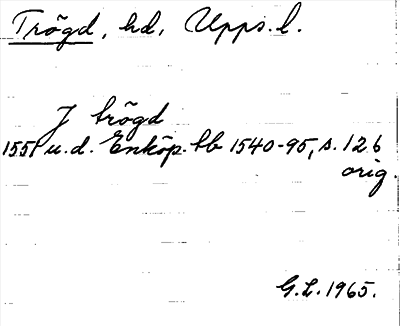 Trögd, hd, Upps. l.
J trögd
1551 u.d. Enköp. tb 1540-95, s. 126
orig.
G.L. 1965.